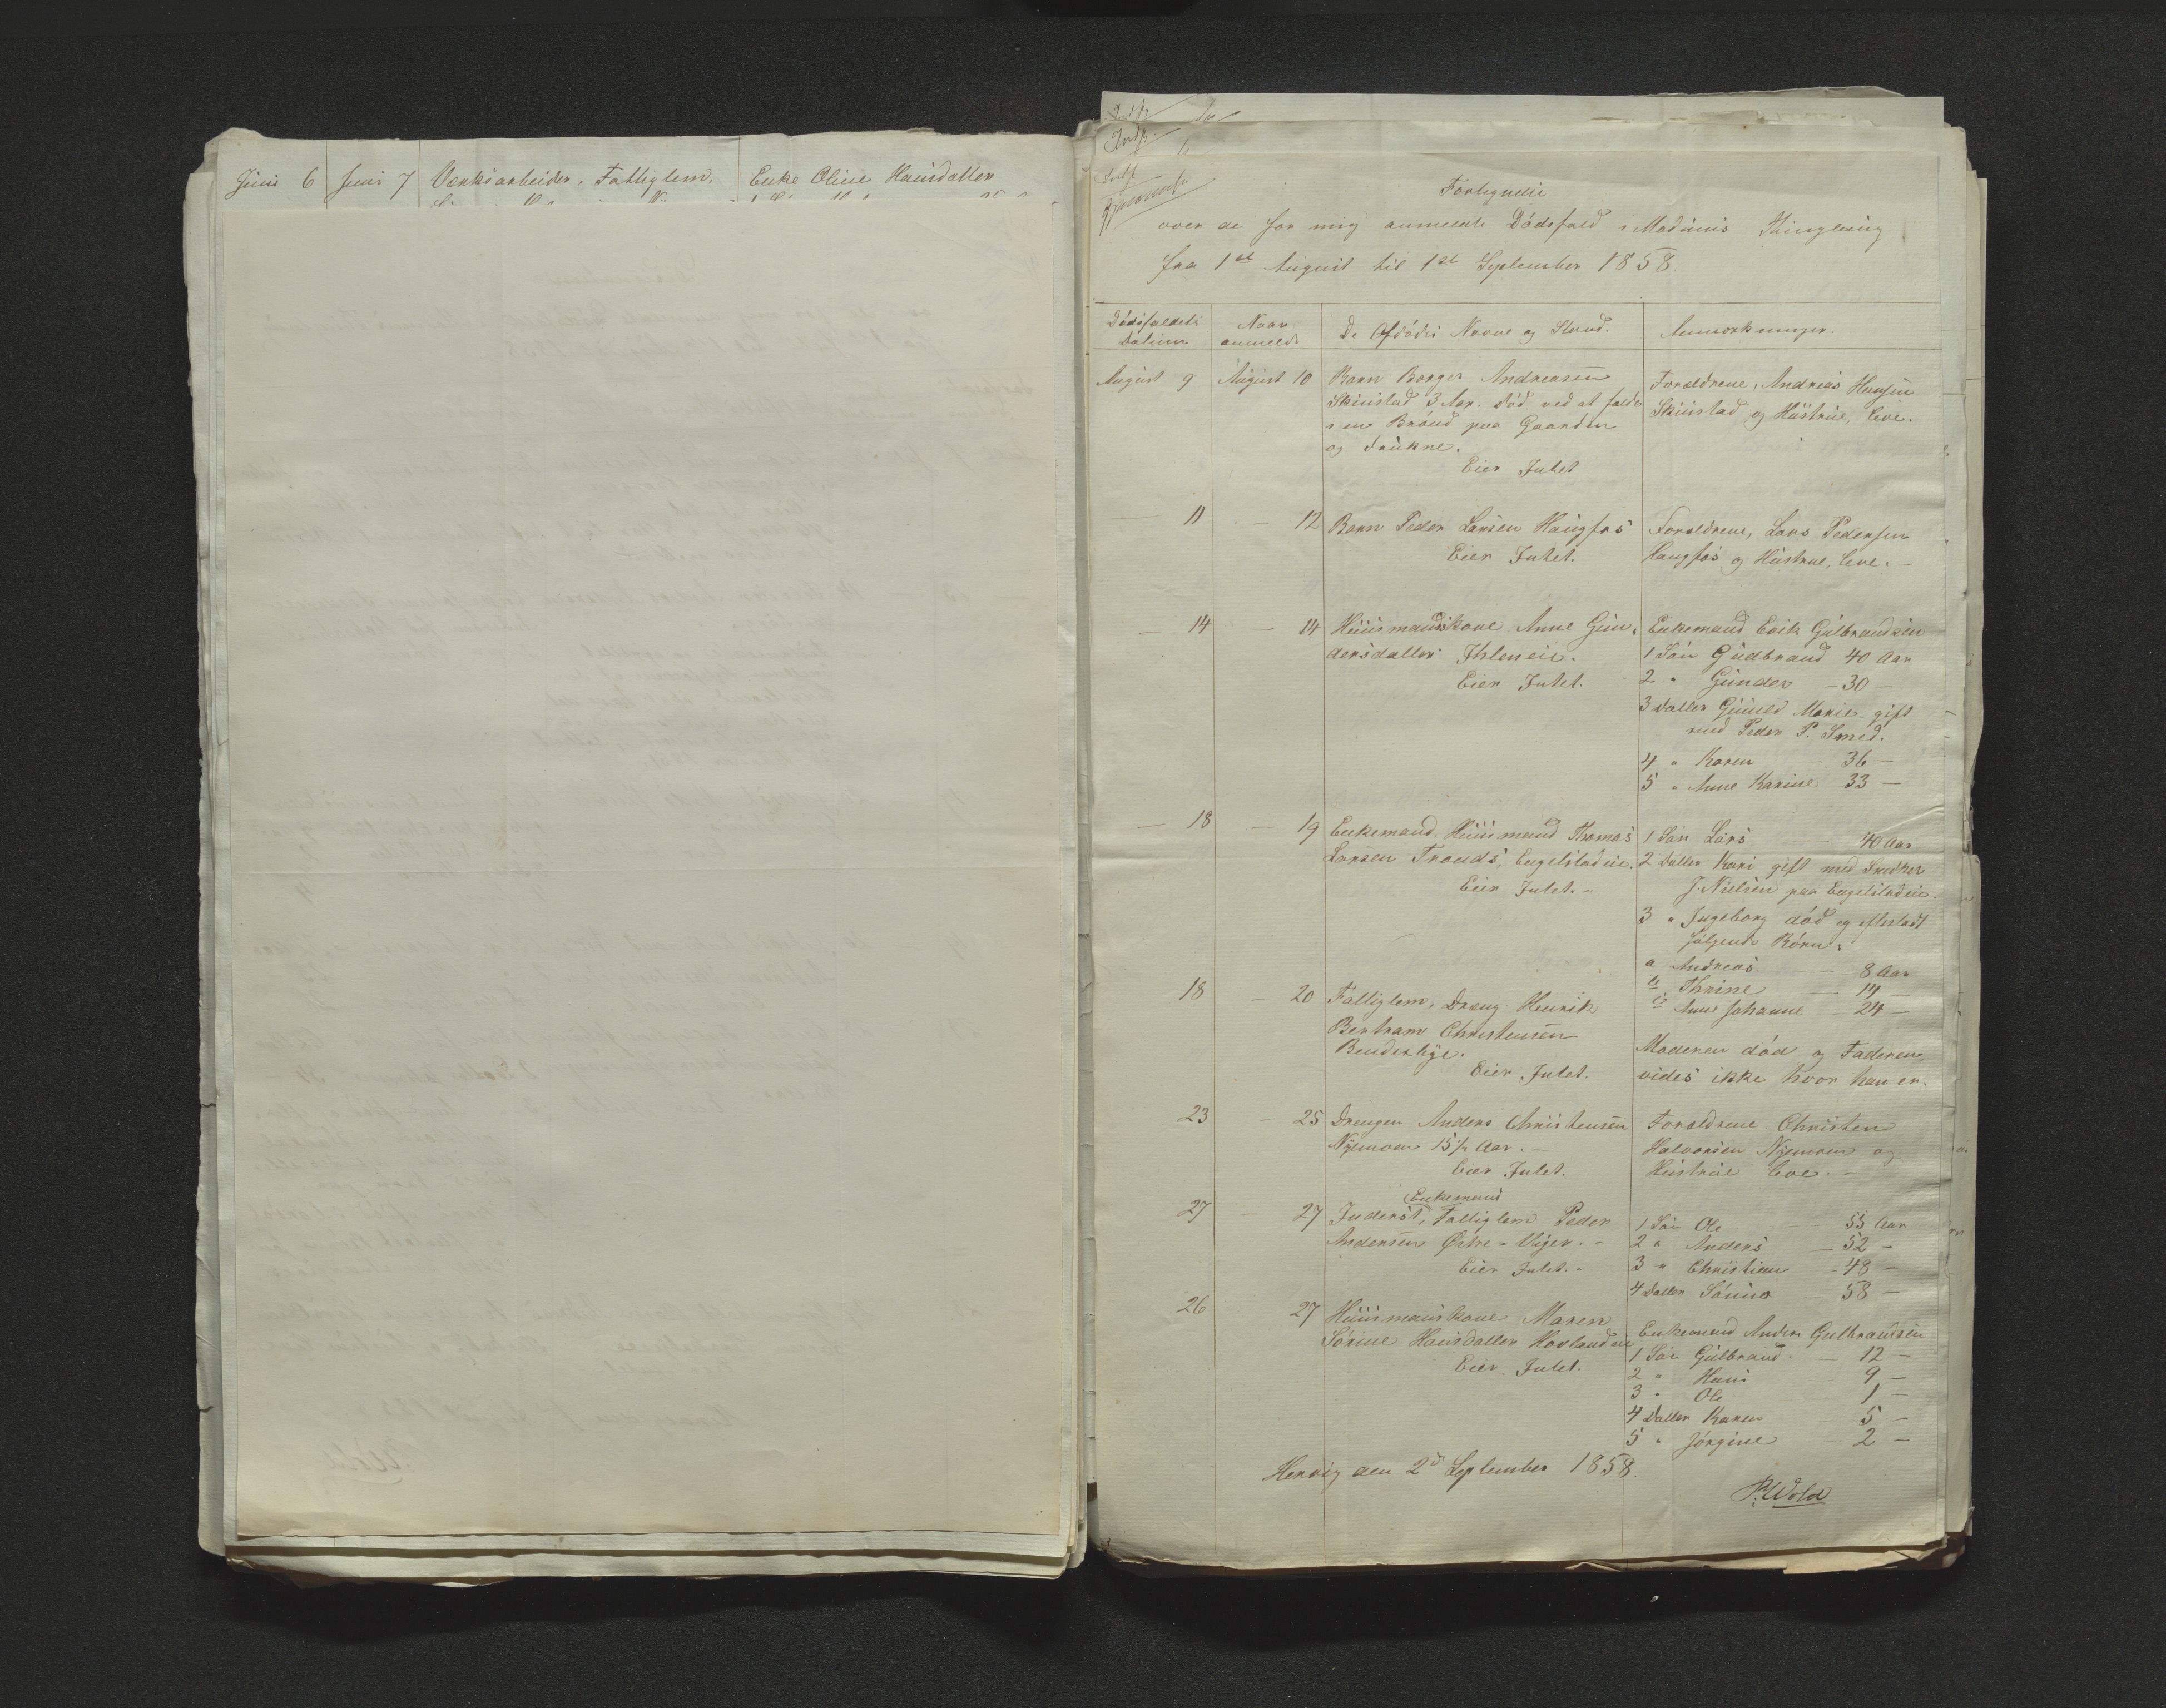 Juni 6 Juni 7 Værksarbeider, Fattiglem, Enke Oline Hansdatter
Fortegnelse
over de for mig anmeldte Dödsfald i Modums Thinglaug
fra 1st August til 1st September 1858
Dödsfaldets Datum
Naar anmeldt
De Afdödes Navne og Stand.
Anmærkninger.
August 9 August 10 Barn Borger Andreasen
Skinstad 3 Aar. död ved at falde
i en Brönd paa Gaarden
og drukne.
Eier Intet
Forældrene, Andreas Hansen
Skinstad og Hustrue, leve.
11 – 12 Barn Peder Larsen Haugfos
Eier Intet.
Forældrene, Lars Pedersen
Haugfos og Hustrue, leve. –
– 14 – 14 Huusmandskone Anne Gun-
dersdatter Ihleneie.
Eier Intet.
Enkemand Erik Gulbrandsen
1 Sön Gudbrand 40 Aar
2 " Gunder – 30 –
3 Datter Gunild Marie gift
med Peder P. Smed.
4 " Karen 36 –
5 " Anne Karine 33 –
– 18 – 19 Enkemand Huusmand Thomas
Larsen Tronds, Engelstadeie.
Eier Intet. –
1 Sön Lars 40 Aar
2 Datter Kari gift med Snedker
J. Nielsen paa Engelstadeie.
3 " Ingeborg död og efterladt
fölgende Börn:
a Andreas 8 Aar
b Thrine 14 –
c Anne Johanne – 24 –
18 – 20 Fattiglem, Dreng Henrik
Bertram Christensen
Eier Intet.
Moderen död og Faderen
vides ikke hvor han er.
23 – 25 Drengen Anders Christensen
Nyemoen 15½ Aar. –
Eier Intet.
Forældrene Christen
Halvorsen Nyemoen og
Hustrue leve. –
Enkemand
27 – 27 Inderst, Fattiglem Peder
Andersen Østre-Viger. –
Eier Intet. –
1 Sön Ole 55 Aar
2 " Anders – 52 –
3 " Christian – 48 –
4 Datter 58 –
26 27 Huusmanskone Maren
Sörine Hansdatter Hovlandeie
Eier Intet.
Enkemand Anders Gulbrandsen
1 Sön Gulbrand – 12 –
2 " Hans 9 –
3 " Ole 1 –
4 Datter Karen 5 –
5 " Jörgine 2 –
Hervig den 2d September 1858.
P. Wold